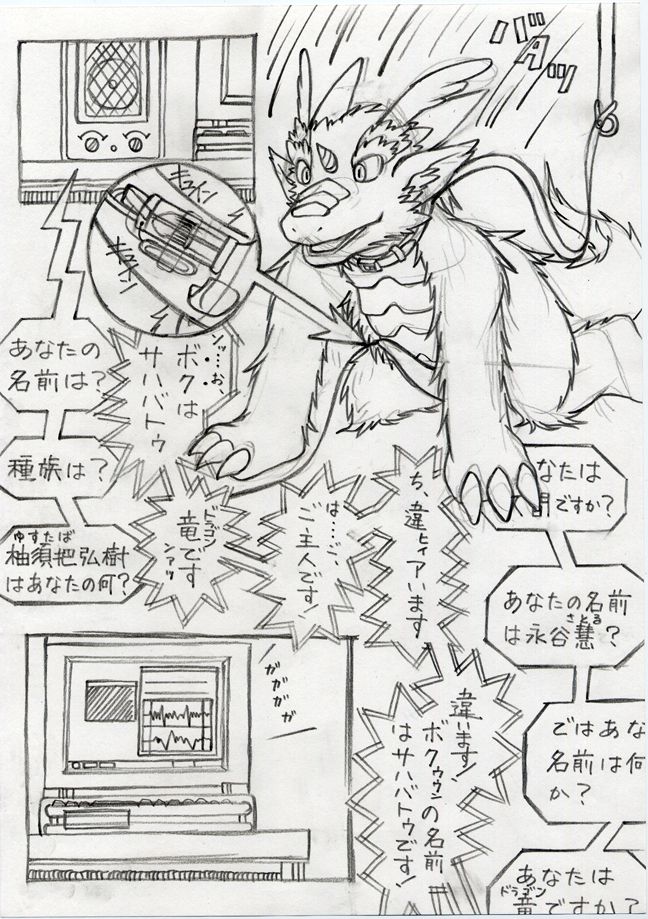 キュイン
キュイン
あなたの
名前は?
ンッ…お、
ボクは
サハバトゥ
種族は?
ドラゴン
竜です
ンアッ
ゆすたば
柚須把弘樹
はあなたの何?
は…ご、
ご主人です!
なたは
ですか?
ち、違ヒィアいます
あなたの名前
さとる
は永谷慧?
違います!
ボクゥゥンの名前
はサハバトゥです!
ではあな
名前は何
か?
あなたは
ドラゴン
竜ですか?
ガガガガ